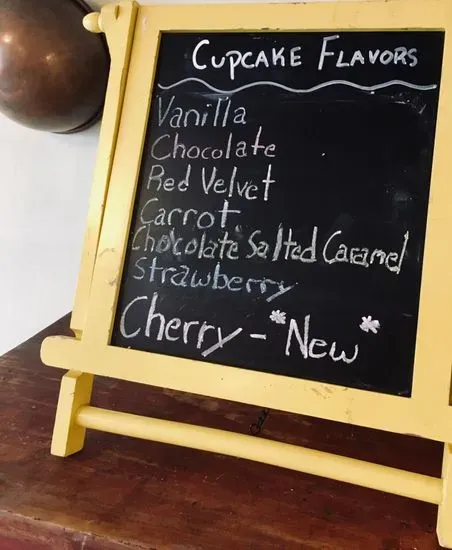 Cupcake Flavors
Vanilla
Chocolate
Red Velvet
Carrot
Chocolate Salted Caramel
Strawberry
Cherry - *New*